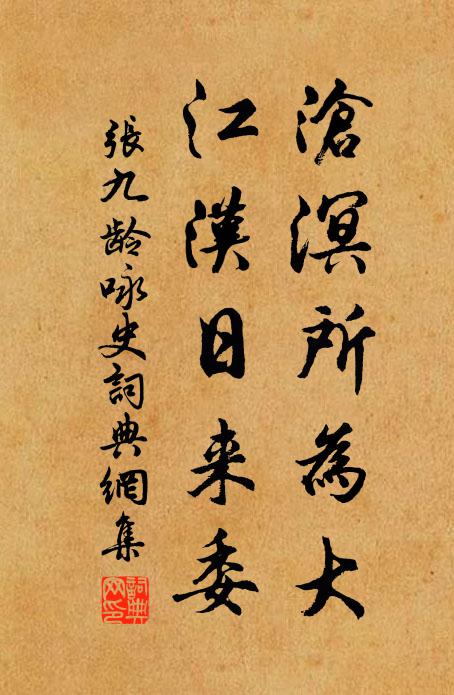 滄溟所為大
江漢日来委
張九齡咏史詞典網集
詞典
网印